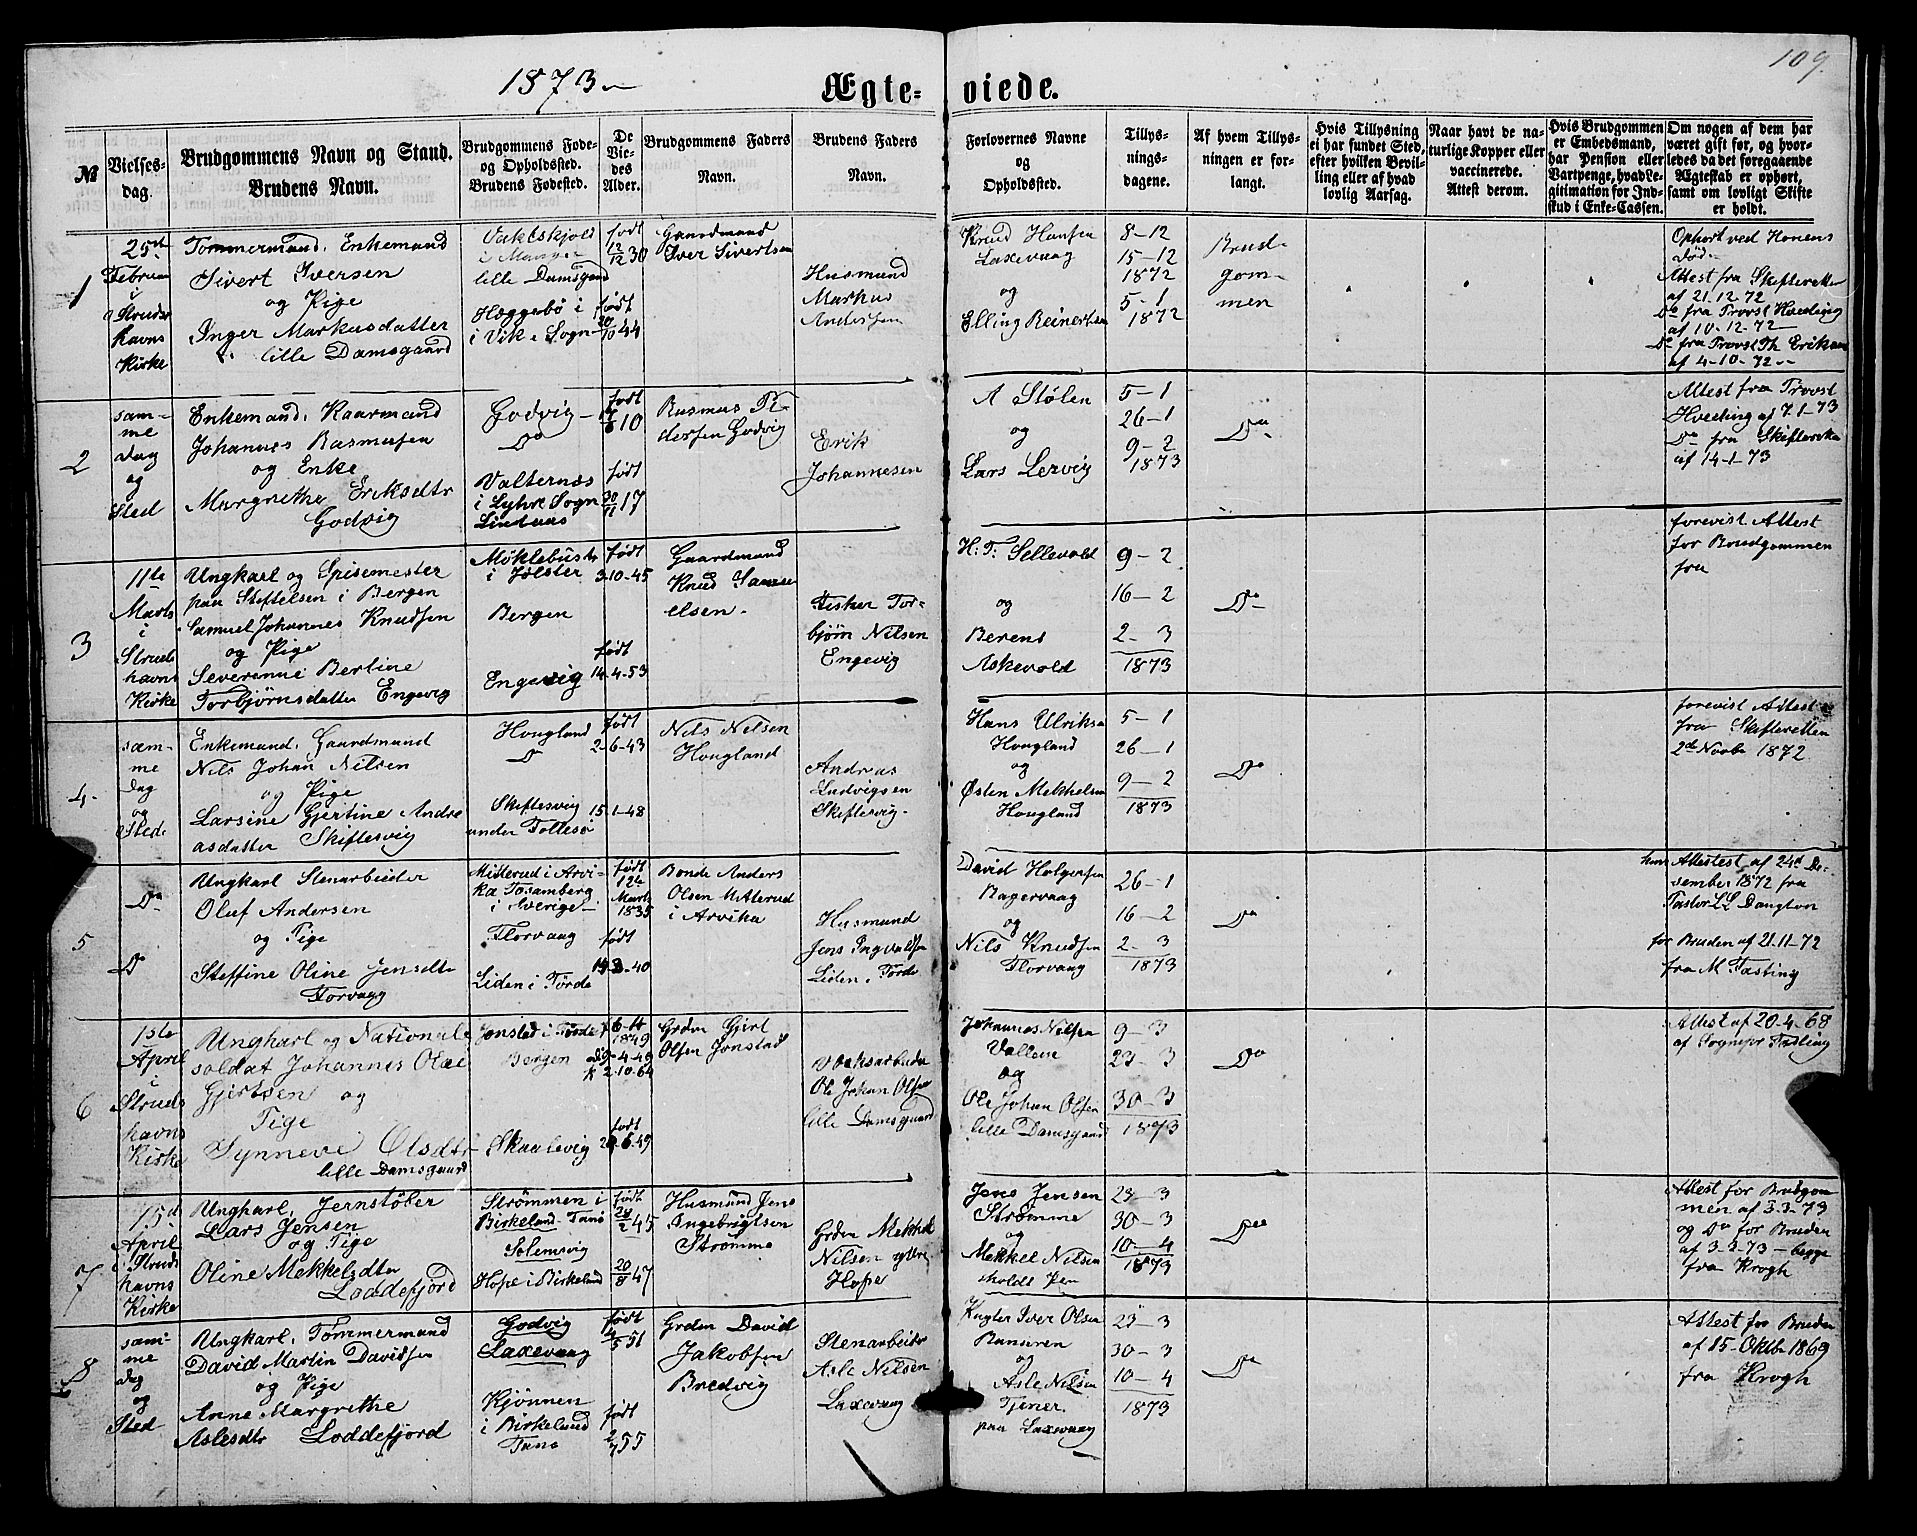 109.
1873
Ægte-
viede.
№
Vielses-
dag.
Brudgommens Navn og Stand.
Brudens Navn.
Brudgommens Føde-
og Opholdssted.
Brudens Fødested.
De
Vie-
des
Alder.
Brudgommens Faders
Navn.
Brudens Faders
Navn.
Forlovernes Navne
og
Opholdssted.
Tillys-
nings-
dagene.
Af hvem Tillys-
ningen er for-
langt.
Hvis Tillysning
ei har fundet Sted,
efter hvilken Bevil-
ling eller af hvad
lovlig Aarsag.
Naar havt de na-
turlige Kopper eller
vaccinerede.
Attest derom.
Hvis Brudgommen
er Embedsmand,
har Pension eller
Vartpenge, hvad Le-
gitimation for Ind-
skud i Enke-Cassen.
Om nogen af dem har
været gift før, og hvor-
ledes da det foregaaende
Ægteskab er ophørt,
samt om lovligt Skifte
er holdt.
1
25de
Februar
i
Struds
havns
Kirke
Tømmermand, Enkemand
Sivert Iversen
og Pige
Inger Markusdatter
lille Damsgaard
i Manger
lille Damsgaard
Hæggebø i
i Vik i Sogn
født
12/12 30
født
20/10 44
Gaardmand
Iver Sivertsen
Husmand
Markus
Andersen
Knud Hansen
Laxevaag
og
Elling Reinertsen
8-12
15-12
1872
5-1
1872
Brud-
gom-
men
Ophørt ved Konens
Død
Attest fra Skifteretten
af 21-12-72
Do fra Provst Hveding
af 10-12-72
Do fra Provst Th Eriksen
af 4-10-72
2
sam-
me
Dag
og
Sted
Enkemand, Kaarmand
Johannes Rasmusen
og Enke
Margrethe Eriksdtr
Godvig
Godvig
Do
Valternæs
i Lyhre Sogn
Lindaas
født
10
født
30/11 17
Rasmus Pe
dersen Godvig
Erik
Johannesen
A Stølen
og
Lars Lervig
5-1
26-1
9-2
1873
Do
Attest fra Provst
Hveding af 7-1-73
Do fra Skifteretten
af 14-1-73
3
11te
Marts
i
Struds
havns
Kirke
Ungkarl og Spisemester
paa Stiftelsen i Bergen
Samuel Johannes Knudsen
og Pige
Severine Bertine
Torbjørnsdatter Engevig
Møklebust
i Jølster
Bergen
Engevig
født
3-10-45
født
14-4-53
Gaardmand
Knud Samu
elsen
Fisker Tor-
bjørn Nilsen
Engevig
H: T: Sellevold
og
Berent
Askevold
9-2
16-2
2-3
1873
Do
forevist Attest
for Brudgommen
fra
4
sam-
me
Dag
og
Sted
Enkemand, Gaardmand
Nils Johan Nilsen
og Pige
Larsine Gjertine Andre
asdatter Skiftesvig
Hougland
Do
Skiftesvig
under Follesø
født
2-6-43
15-1-48
Nils Nilsen
Hougland
Andreas
Ludvigsen
Skiftesvig
Hans Ulriksen
Hougland
og
Østen Mekkelsen
Hougland
5-1
26-1
9-2
1873
Do
forevist Attest
fra Skifteretten
2de Novbr 1872
5
Do
Do
Ungkarl Stenarbeider
Oluf Andersen
og Pige
Steffine Oline Jensdtr
Florvaag
Mitterud i Arvi-
ka
i Sverige
Florvaag
Liden i Førde
født
12te
Marts
1835
født
-40
Bonde Anders
Olsen Mitterud
i Arvika
Husmand
Jens Ingvaldsen
Liden, Førde
David Holgersen
Bagervaag
og
Nils Knudsen
Florvaag
26-1
16-2
2-3
1873
Do
hans Attestest af 24de De-
cember 1872 fra
Pastor
for Bruden af 21-11-72
fra M Fasting
6
1ste
April
i
Struds
havns
Kirke
Ungkarl og National
soldat Johannes Olai
Gjertsen og
Pige
Synneve Olsdtr
lille Damsgaard
Jonstad i Førde
Bergen
Skaalevig
f 6-4
1849
-4-49
K 2-10-64
født
-6-49
Grdm Gjert
Olsen Jonstad
Værksarbeider
Ole Johan Olsen
lille Damsgaard
Johannes Nilsen
Vallem
og
Ole Johan Olsen
lille Damsgaard
9-3
23-3
30-3
1873
Do
Attest af 20-4-68
af Sognepr Fasling
7
15de
April
i Struds
havns
Kirke
Ungkarl, Jernstøber
Lars Jensen
og Pige
Oline Mekkelsdtr
Loddefjord
Strømmen i
Birkeland Fane
Solemsvig
Hope i Birkeland
født
28/2 45
20/8 47
Husmand Jens
Angebrigtsen
Strømme
Grdm Mekkel
Nilsen ytre
Hope
Jens Jensen
Strømme
og
Mekkel Nilsen
23-3
30-3
10-4
1873
Do
Attest for Brudgom
men af 3-3-73
og Do for Bruden
af 3-3-73 - begge
fra Krogh
8
sam-
me
Dag
og
Sted
Ungkarl, Tømmermand
David Martin Davidsen
og Pige
Anne Margrethe
Aslesdtr Loddefjord
Godvig
Laxevaag
Kjønnen
i Birkeland
Fane
født
14/5 51
født
2/7 55
Grdm David
Jakobsen
Bredvig
Stenarbeider
Asle Nilsen
Laxevaag
Iver Olsen
og
Asle Nilsen
Tjener
paa Laxevaag
23-3
30-3
10-4
1873
Do
Attest for Bruden
af 15-Oktbr 1869
fra Krogh